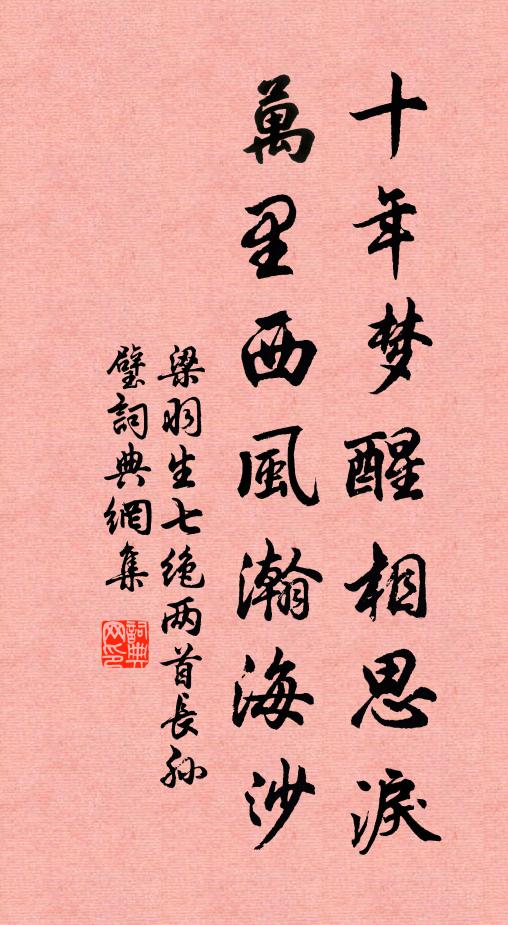 十年梦醒相思淚
萬里西風瀚海沙
梁羽生七绝两首長孙
璧詞典網集
詞典网印